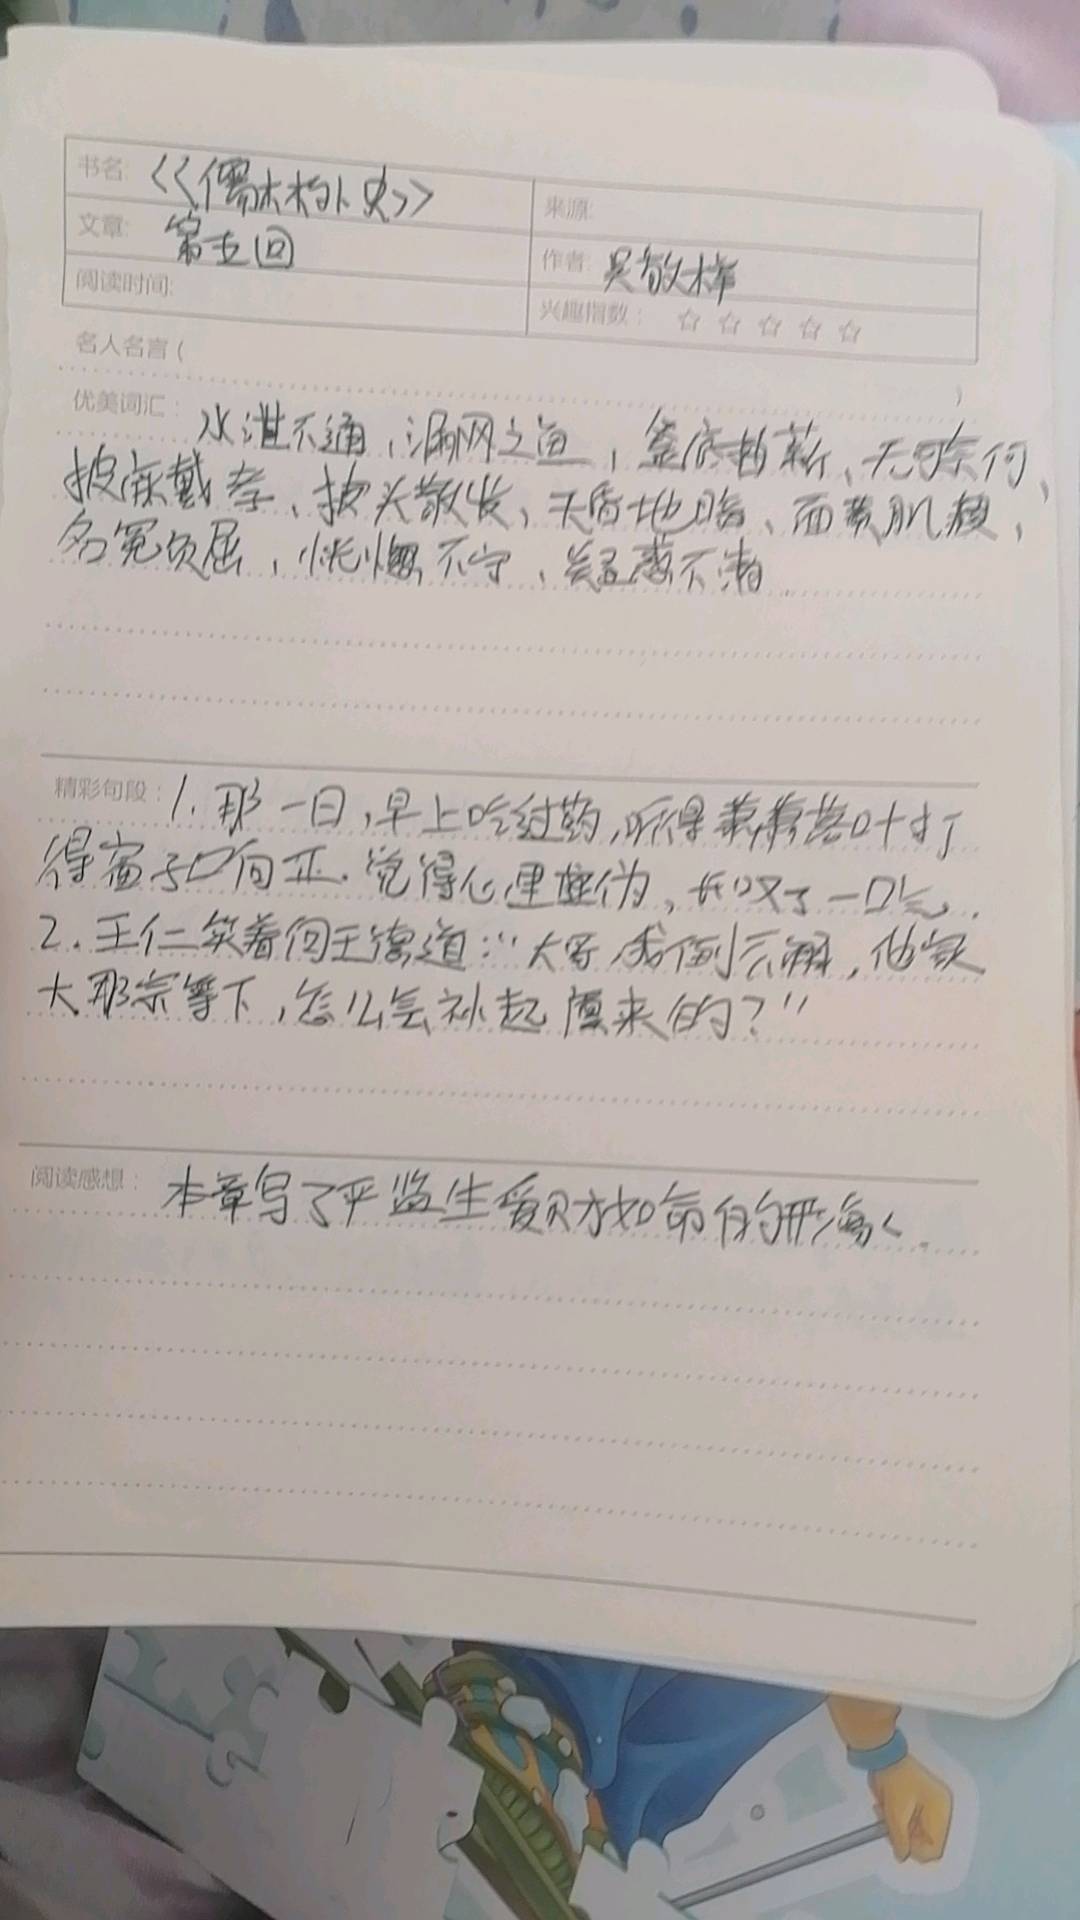 书名: 《儒林外史》
来源:
文章: 第五回
作者: 吴敬梓
阅读时间:
兴趣指数: ☆ ☆ ☆ ☆ ☆
名人名言 ( )
优美词汇: 水泄不通, 漏网之鱼, 釜底抽薪、无可奈何、
披麻戴孝、披头散发、天昏地暗、面黄肌瘦、
名冤负屈, 恍惚不宁、
精彩句段: 1. 那一日,早上吃过药,听得萧萧落叶打
得窗子响, 觉得心里虚,长叹了一口气.
2. 王仁笑着向王德道:“大哥,我倒不解,他家
大那宗笔下,怎么会补起廪来的?”
阅读感想: 本章写了严监生爱财如命的形